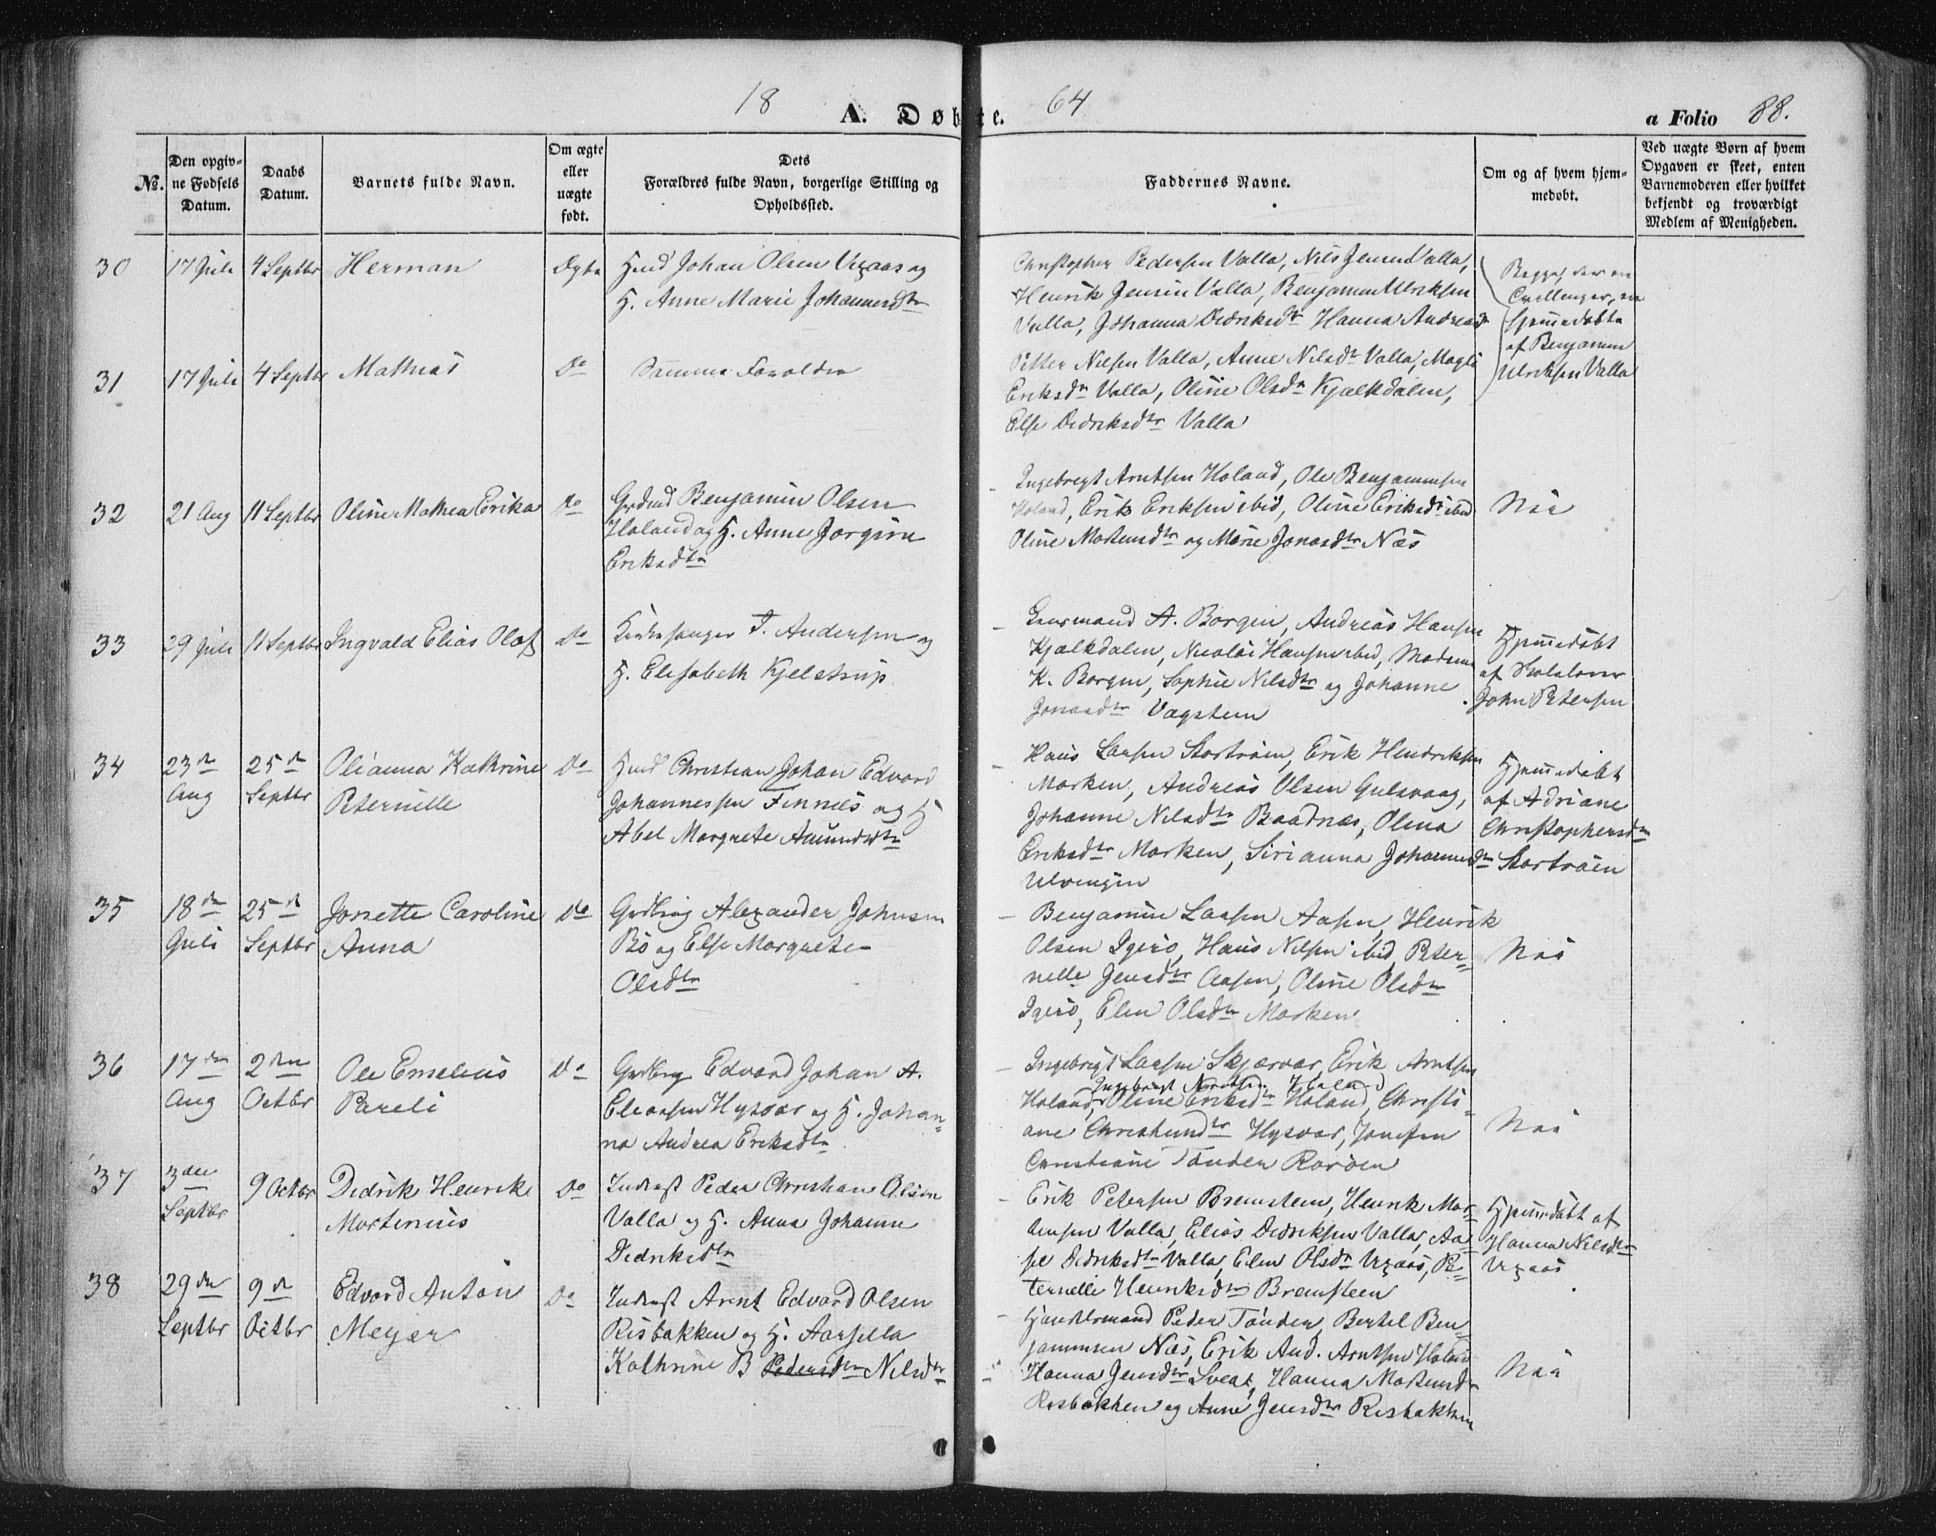 18 64
A. Døbte.
a Folio 88.
No.
Den opgiv-
ne Fødsels
Datum.
Daabs
Datum.
Barnets fulde Navn.
Om ægte
eller
uægte
født.
Dets
Forældres fulde Navn, borgerlige Stilling og
Opholdssted.
Faddernes Navne.
Om og af hvem hjem-
medøbt.
Ved uægte Børn af hvem
Opgaven er skeet, enten
Barnemoderen eller hvilket
bekjendt og troværdigt
Medlem af Menigheden.
30 17 Juli 4 Septbr Herman Ægte
Johan Olsen Vegaas og
H. Anne Marie Johannesdtr
Christopher Pedersen Valla, Nils Jensen Valla,
Henrik Jensen Valla, Benjamin Ulriksen
Valla, Johanna Didriksdtr Hanna Andreasd
Begge, der ere
Tvillinger, ere
hjemmedøbte
af Benjamin
Ulriksen Valla
31 17 Juli 4 Septbr Mathias Do
Samme Forældre
Petter Nilsen Valla, Anne Nilsdtr Valla, Magli
Eriksdtr Valla, Oline Olsdtr Kjælkdalen,
Else Didriksdtr Valla
32 21 Aug 11 Septbr Oline Mathea Erika Do
Benjamin Olsen
Holand og H. Anne Jorgine
Eriksdtr
Ingebrigt Arntsen Holand, Ole Benjaminsen
Holand, Erik Eriksen ibid, Oline Eriksdtr ibid
Oline Mortensdtr og Marie Jonasdtr Næs
Nei
33 29 Juli 11 Septbr Ingvald Elias Olaf Do
Kirkesanger T. Andersen og
H. Elisabeth Kjelstrup
A. Borgen, Andreas Hansen
Kjælkdalen, Nicolai Hansen ibid, Madame
K. Borgen, Sophie Nilsdtr og Johanne
Jonasdtr Vægsteen
Hjemmedøbt
af Skolelærer
John Petersen
34 23de Aug 25de Septbr Olianna Kathrine
Peternille Do
Christian Johan Edvard
Johannessen Finnes og H
Abel Margrete Amundsdtr
Hans Larsen Stortrøen, Erik Hendriksen
Marken, Andreas Olsen Gulsvaag,
Johanne Nilsdtr Baadnæs, Olina
Eriksdtr Marken, Sirianna Johannesdtr
Ulvengen
Hjemmedøbt
af Adriane
Christophersdtr
Stortrøen
35 18de Juli 25de Septbr Jonette Caroline
Anna Do
Alexander Johnsen
Bø og Else Margrete
Olsdtr
Benjamin Larsen Aasen, Henrik
Olsen Igerø, Hans Nilsen ibid, Peter-
nelle Jensdtr Aasen, Oline Olsdtr
Igerø, Elen Olsdtr Marken
Nei
36 17de Aug 2den Octbr Ole Emelius
Pareli Do
Edvard Johan A.
Eliassen Hysvær og H. Johan-
na Andrea Eriksdtr
Ingebrigt Larsen Skjærvær, Erik Arntsen
Ingebrigt Arntsen Holand
Holand, Oline Eriksdtr Holand, Christi-
ane Hysvær, Jomfru
Christiane Tønder Rorøen
Nei
37 3den Septbr 9 Octbr Didrik Henrik
Mortenius Do
Inderst Peder Christian Olsen
Valla og H. Anna Johanna
Didriksdtr
Erik Petersen Bremsteen, Henrik Mor-
tensen Valla, Elias Didriksen Valla, Aa-
se Didriksdtr Valla, Elen Olsdtr Vegaas, Pe-
ternelle Henriksdtr Bremsteen
Hjemmedøbt af
Hanna Nilsdtr
Vegaas
38 29de Septbr 9de Octbr Edvard Anton
Meyer Do
Inderst Arnt Edvard Olsen
Risbakken og H. Aarsella
Kathrine B Pedersdtr Nilsdtr
Handelsmand Peder Tønder, Bertel Ben-
jaminsen Næs, Erik And. Arntsen Holand
Hanna Jensdtr Sveas, Hanna Mortensdtr
Risbakken og Anne Jensdtr Risbakken
Nei